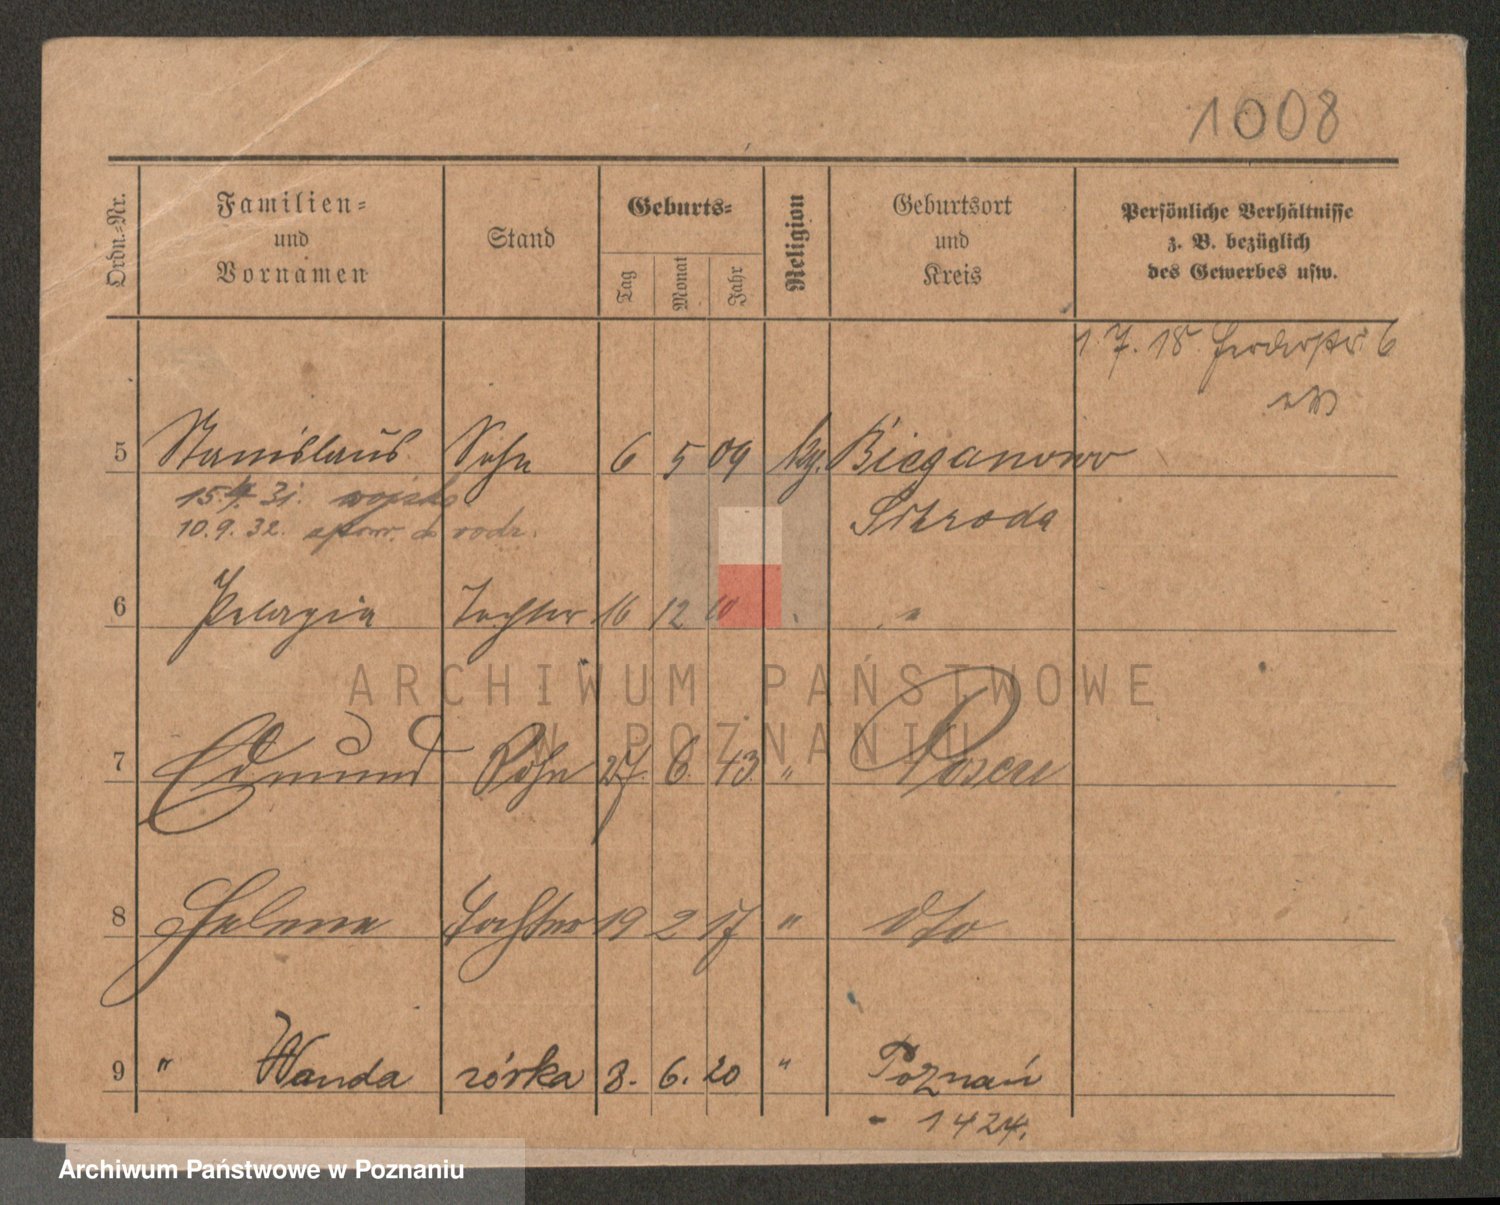 1008
Ordn.-Nr.
Familien-
und
Vornamen
Stand
Geburts-
Tag
Monat
Jahr
Religion
Geburtsort
und
Kreis
Persönliche Verhältnisse
z. B. bezüglich
des Gewerbes usw.
1 7. 18 6
5 Stanislaus Sohn 6 5 09 Bieganowo
15. 31. wojsko
Schroda
10.9.32. rodz.
6 Pelagia Tochter 16 12 10 "
ARCHIWUM PAŃSTWOWE
W POZNANIU
7 Edmund Sohn 27 6 13 " Posen
8 Helene Tochter 19 2 17 " dto
9 " Wanda córka 8. 6. 20 " Poznań
- 1424.
Archiwum Państwowe w Poznaniu